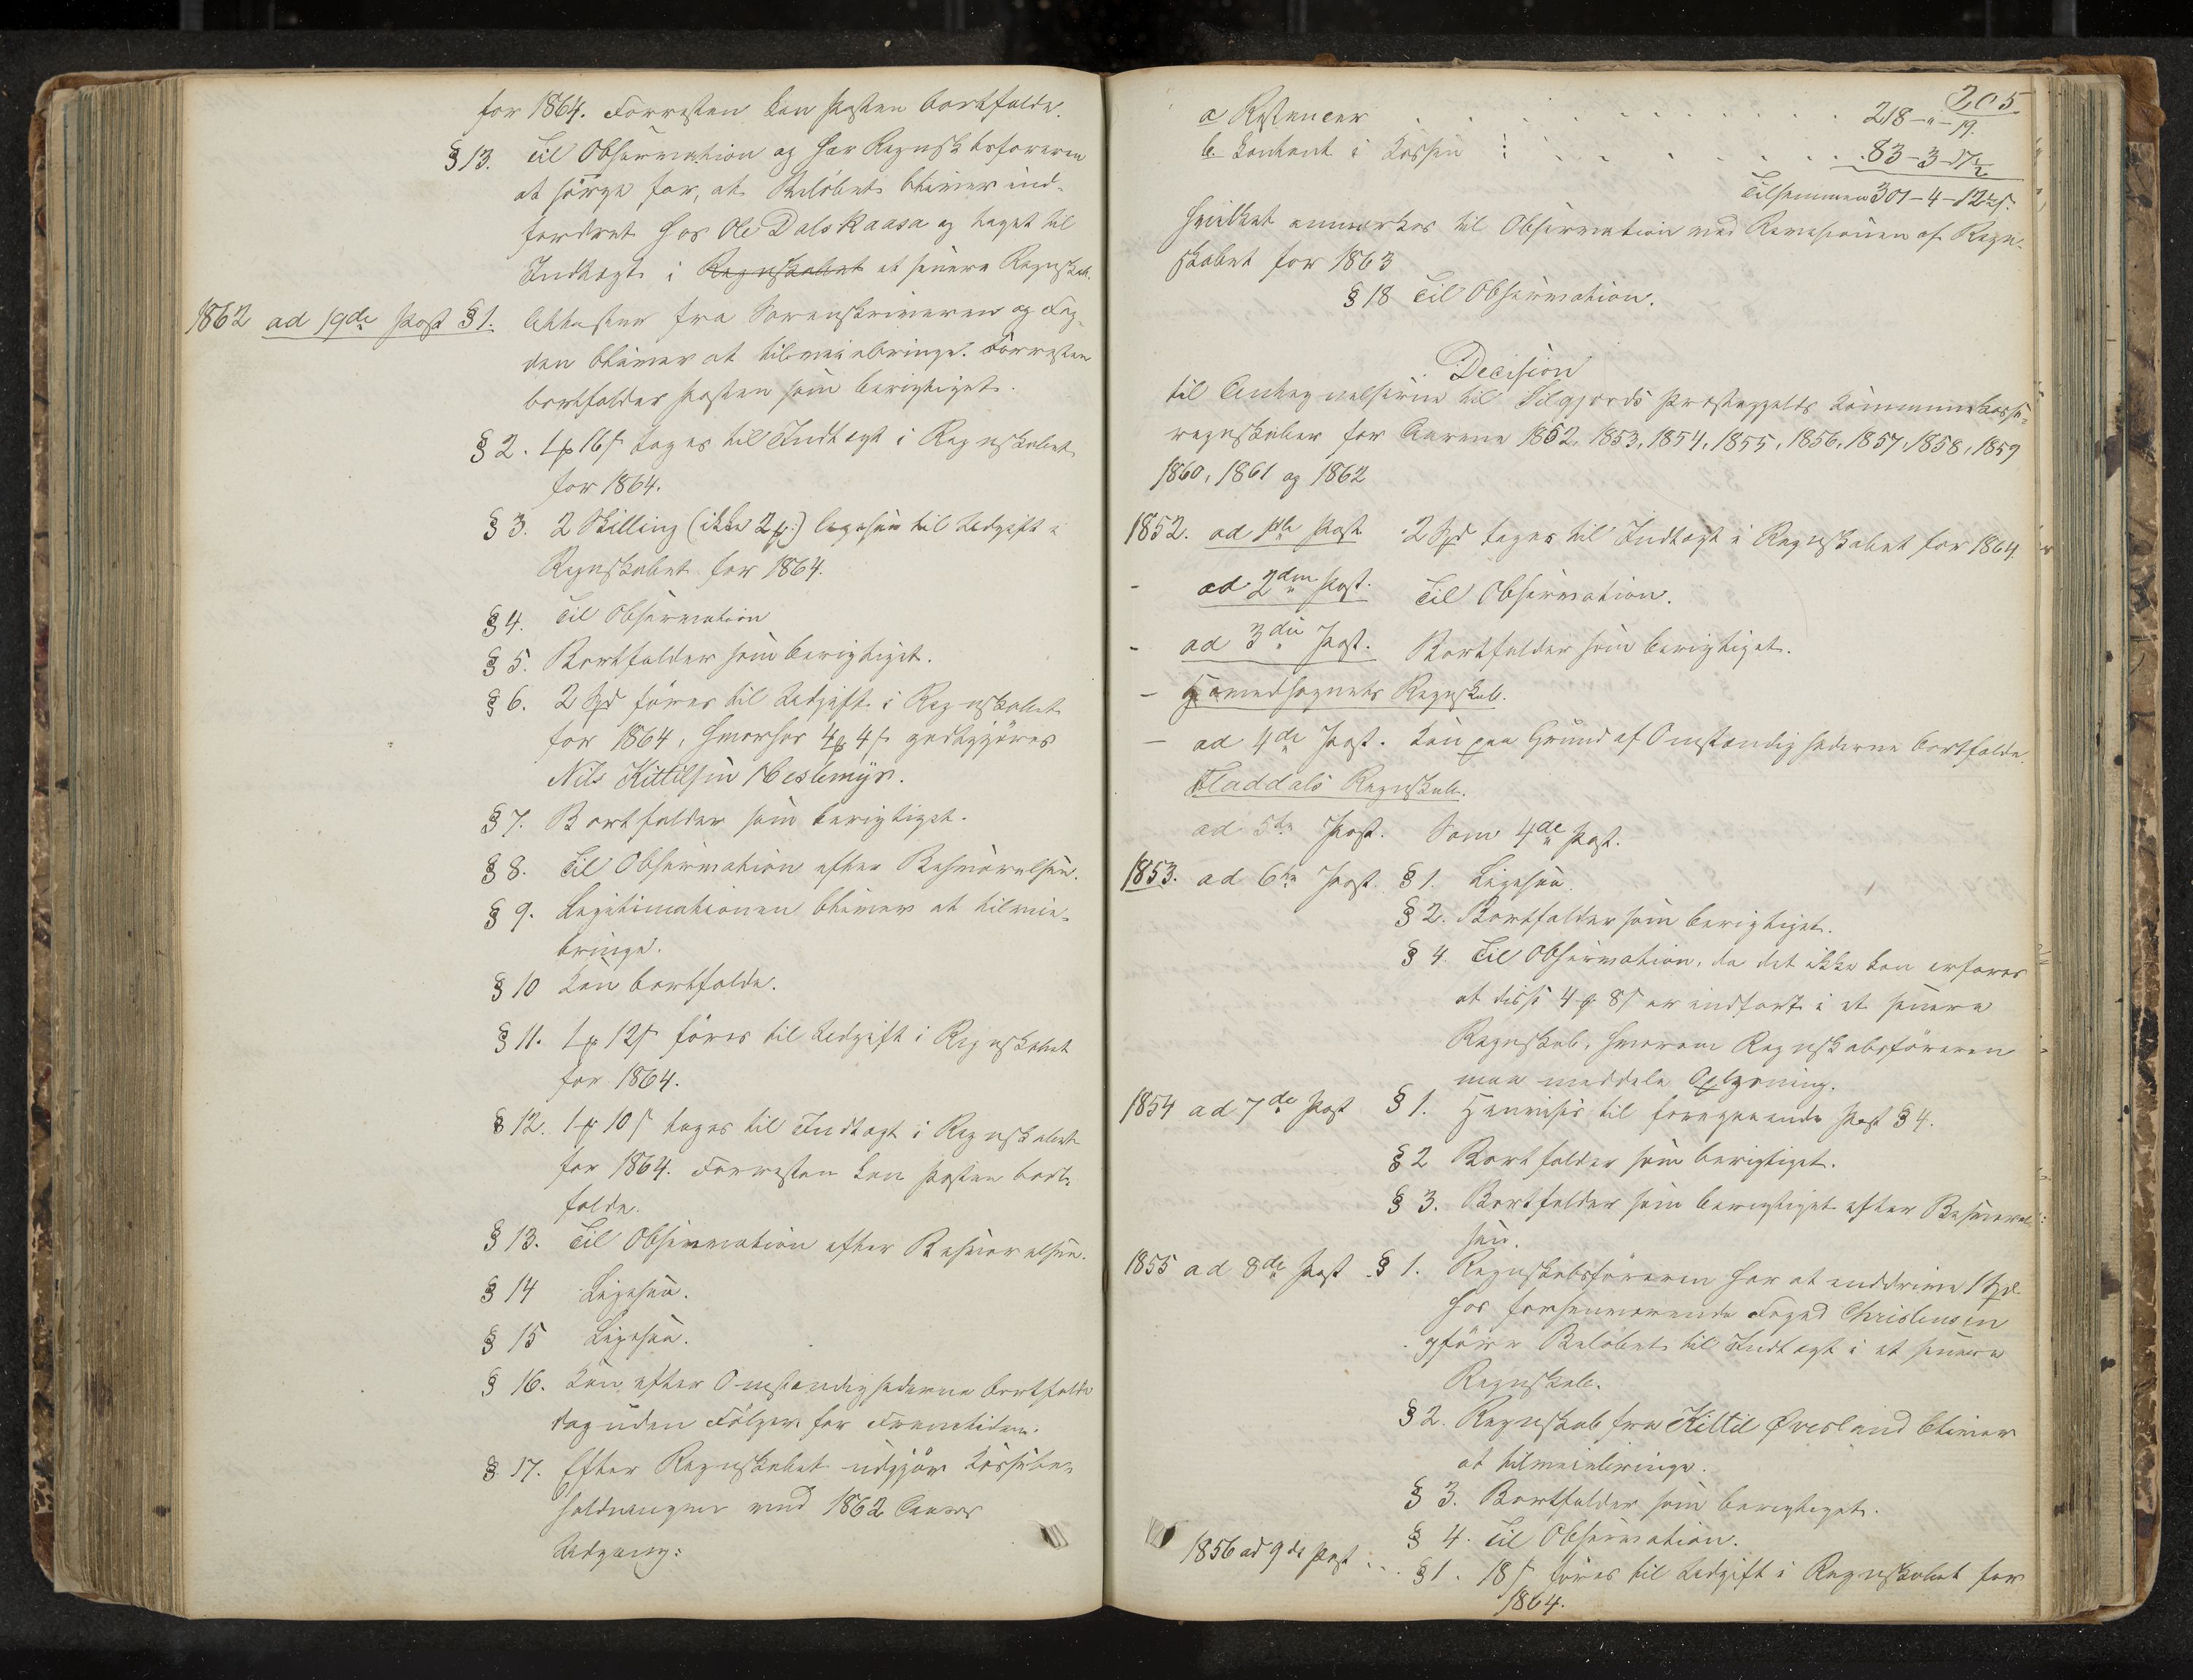 for 1864. Forresten kan Posten bortfalde.
§ 13. Til Observation og har Regnskabsføreren
at sørge for, at Beløbet bliver ind-
fordret hos Ole Dalskaasa og taget til
Indtægt i Regnskabet et senere Regnskab.
1862 ad 19de Post § 1. Attester fra Sorenskriveren og Fog-
den bliver at tilveiebringe. Forresten
bortfalder Posten som berigtiget.
§ 2. 1 ƥ 16 s tages til Indtægt i Regnskabet
for 1864.
§ 3. 2 Skilling (ikke 2 ƥ:) ligesaa til Udgift i
Regnskabet for 1864.
§ 4. Til Observation
§ 5. Bortfalder som berigtiget.
§ 6. 2 Spd føres til Udgift i Regnskabet
for 1864, hvorhos 4 ƥ 4 s godtgjøres
Nils Kittilsen Heslemyr.
§ 7. Bortfalder som berigtiget.
§ 8. Til Observation efter Besvarelsen.
§ 9. Legitimationen bliver at tilveie-
bringe.
§ 10 Kan bortfalde.
§ 11. 1 ƥ 12 s føres til Udgift i Regnskabet
for 1864.
§ 12. 1 ƥ 10 s tages til Indtægt i Regnskabet
for 1864. Forresten kan Posten bort-
falde.
§ 13. Til Observation efter Besvarelsen.
§ 14 Ligesaa.
§ 15 Ligesaa.
§ 16. Kan efter Omstændighederne bortfalde
dog uden Følger for Fremtiden.
§ 17. Efter Regnskabet udgjør Kassebe-
holdningen ved 1862 Aars
Udgang:
205
a Restancer . . . . . . . . . . . 218 - " - 19.
b. Contant i Kassen : . . . . . . . 83 - 3 - 17½
Tilsammen 301 - 4 - 12½ s.
hvilket anmærkes til Observation ved Revisionen af Regn-
skabet for 1863
§ 18 Til Observation.
Decision
til Antegnelserne til Silgjords Præstegjelds Kommunekasse-
regnskaber for Aarene 1852, 1853, 1854, 1855, 1856, 1857, 1858, 1859
1860, 1861 og 1862
1852. ad 1ste Post 2 Spd tages til Indtægt i Regnskabet for 1864.
- ad 2den Post. Til Observation.
- ad 3die Post. Bortfalder som berigtiget.
- Hovedsognets Regnskab.
- ad 4de Post. Kan paa Grund af Omstændighederne bortfalde.
Fladdals Regnskab.
ad 5te Post. Som 4de Post.
1853. ad 6te Post. § 1. Ligesaa.
§ 2. Bortfalder som berigtiget.
§ 4. Til Observation, da det ikke kan erfares
at disse 4 ƥ 8 s er indført i et senere
Regnskab, hvorom Regnskabsføreren
maa meddele Oplysning.
1854 ad 7de Post § 1. Henvises til foregaaende Post § 4.
§ 2 Bortfalder som berigtiget.
§ 3. Bortfalder som berigtiget efter Besvarel-
sen.
1855 ad 8de Post § 1. Regnskabsføreren har at inddrive 1 Spd.
hos forhenværende Foged Christensen
og føre Beløbet til Indtægt i et senere
Regnskab.
§ 2. Regnskab fra Kittil Øvesland bliver
at tilveiebringe.
§ 3. Bortfalder som berigtiget.
§ 4. Til Observation.
1856 ad 9de Post . . . § 1. 18 s føres til Udgift i Regnskabet for
1864.